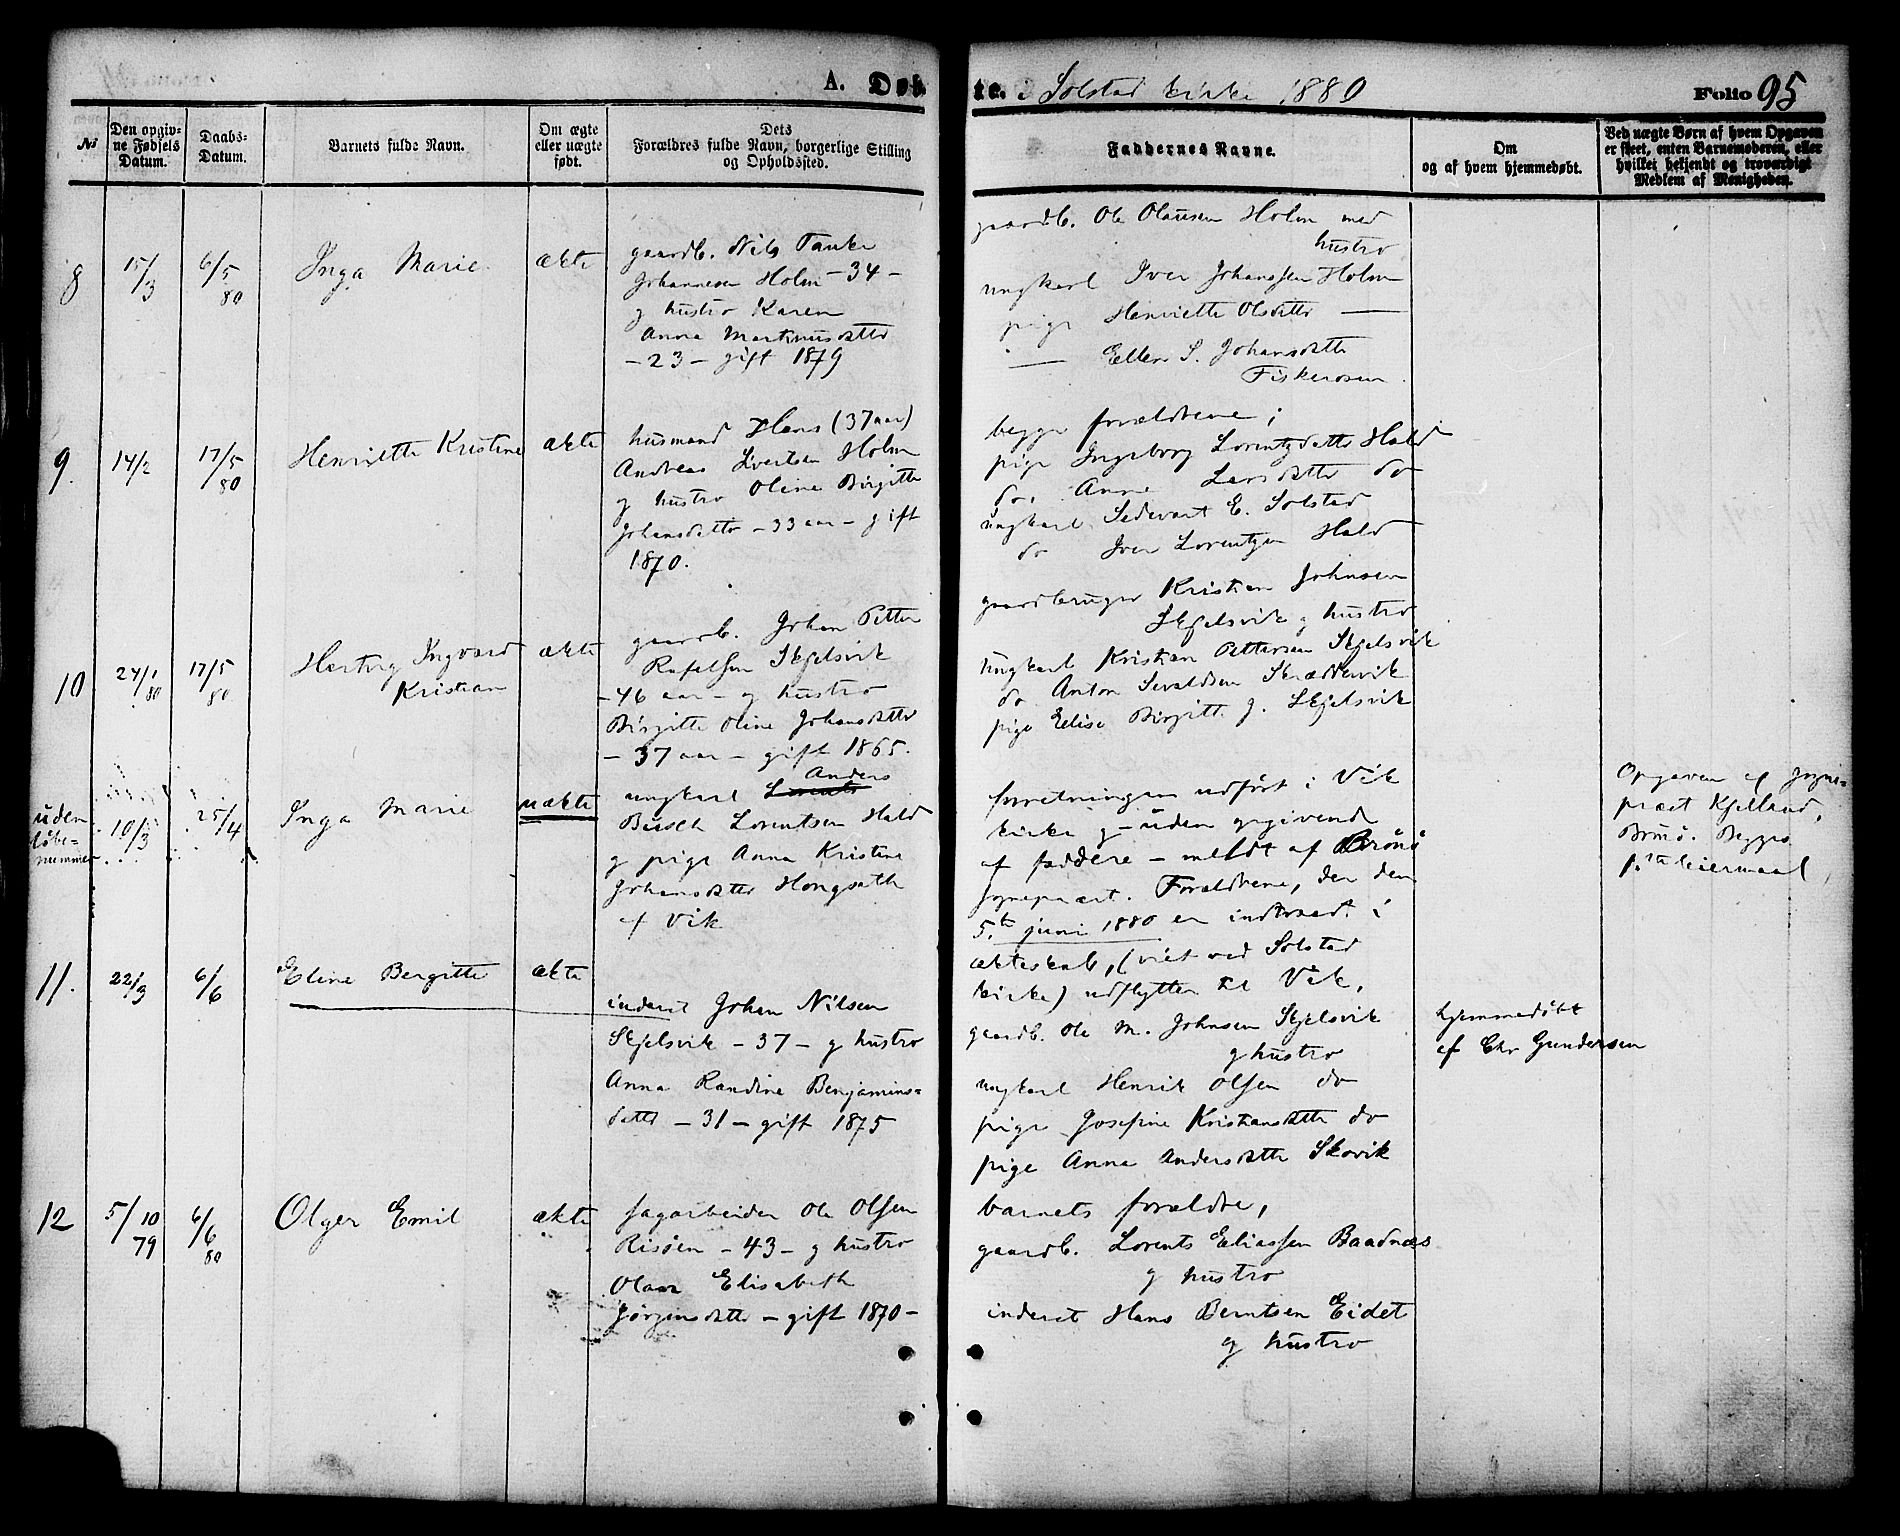 A. Døb
te. i Solstad kirke 1880
Folio 95
No
Den opgiv-
ne Fødsels
Datum.
Daabs-
Datum.
Barnets fulde Navn.
Om ægte
eller uægte
født.
Dets
Forældres fulde Navn, borgerlige Stilling
og Opholdssted.
Faddernes Navne.
Om
og af hvem hjemmedøbt.
Ved uægte Børn af hvem Opgaven
er skeet, enten Barnemoderen, eller
hvilket bekjendt og troværdigt
Medlem af Menigheden.
8
15/3
6/5 80
Inga Marie
ækte
gaardb. Nils Tanke
Johannesen Holm - 34 -
g hustro Karen
Anna Markusdatter
- 23 - gift 1879
gaardb. Ole Olausen Holm med
hustro
ungkarl Iver Johanssen Holm
pige Henriette Olsdatter —
— Ellen S. Johansdatter
Fiskerosen
9.
14/2
17/5 80
Henriette Kristine
ækte
husmand Hans (37 aar)
Andreas Evertsen Holm
g hustro Oline Birgitte
Johansdatter - 33 aar - gift
1870.
begge forældrene;
pige Ingeborg Lorentzdatter Hald
do. Anne Larsdatter do
ungkarl Sedevart E. Solstad
do Iver Lorentzen Hald
10
24/1 80
17/5 80
Hertvig Ingvard
Kristian
ækte
gaardb. Johan Petter
Rafelsen Skjelsvik
- 46 aar - og hustro
Birgitte Oline Johansdatter
- 37 aar - gift 1865.
gaardbruger Kristian Johnsen
Skjelsvik g hustro
Ungkarl Kristian Pettersen Skjelsvik
do Anton Sivaldsen Skreddervik
pige Elise Birgitt. J. Skjelsvik
uden
løbe-
nummer
10/3
25/4
Inga Marie
uækte
Anders
ungkarl Lorents
Busch Lorentsen Hald
g pige Anna Kristine
Johansdatter Hongseth
af Vik
forretningen udført i Vik
kirke g uden opgivende
af faddere - meldt af Brønø
sogneprært. Forældrene, der den
5.te juni 1880 er indtraadt i
ækteskab, (viet ved Solstad
kirke) udflytter til Vik,
Opgaven af sogne-
præst Kjelland,
Brnø. Begges
1.ste leiermaal
11.
22/3
6/6
Eline Bergitte
ækte
inderst Johan Nilsen
Skjelsvik - 37 - g hustro
Anna Randine Benjamins-
datter - 31 - gift 1875
gaardb. Ole M. Johnsen Skjelsvik
g hustro
ungkarl Henrik Olsen do
pige Josefine Kristiansdatter do
pige Anna Andersdatter Skovik
hjemmedøbt
af Chr Gundersen
12
5/10 79
6/6 80
Olger Emil
ækte
sagarbeider Ole Olsen
Risøen - 43 - g hustro
Olava Elisabeth
Jørgensdatter - gift 1870 -
barnets forældre,
gaardb. Lorents Eliassen Baadnæs
g hustro
inderst Hans Berntsen Eidet
g hustro